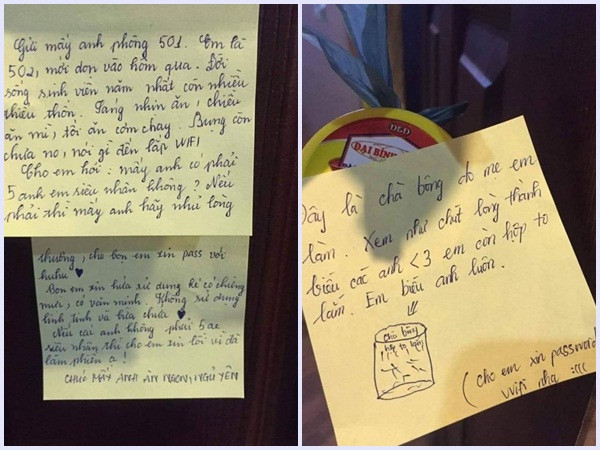 Gửi mấy anh phòng 501. Em là
502, mới dọn vào hôm qua. Đời
sống sinh viên năm nhất còn nhiều
thiếu thốn. Sáng nhịn ăn, chiều
ăn mì, tối ăn cơm chay. Bụng còn
chưa no, nói gì đến lắp WIFI
Cho em hỏi: mấy anh có phải
5 anh em siêu nhân không? Nếu
phải thì mấy anh hãy nhủ lòng
thương, cho bọn em xin pass với
huhu ♥
Bọn em xin hứa sử dụng kế có chừng
mực, có văn minh. Không sử dụng
linh tinh và bừa chưa ♥
Nếu các anh không phải 5 ae
siêu nhân thì cho em xin lỗi vì đã
làm phiền ạ!
CHÚC MẤY ANH ĂN NGON, NGỦ YÊN
D&D
ĐẠI BÌNH
Đây là chà bông do mẹ em
làm. Xem như chút lòng thành
biếu các anh <3 em còn hộp to
lắm. Em biếu anh luôn.
chà bông
(Cho em xin password
Wifi nha :(((